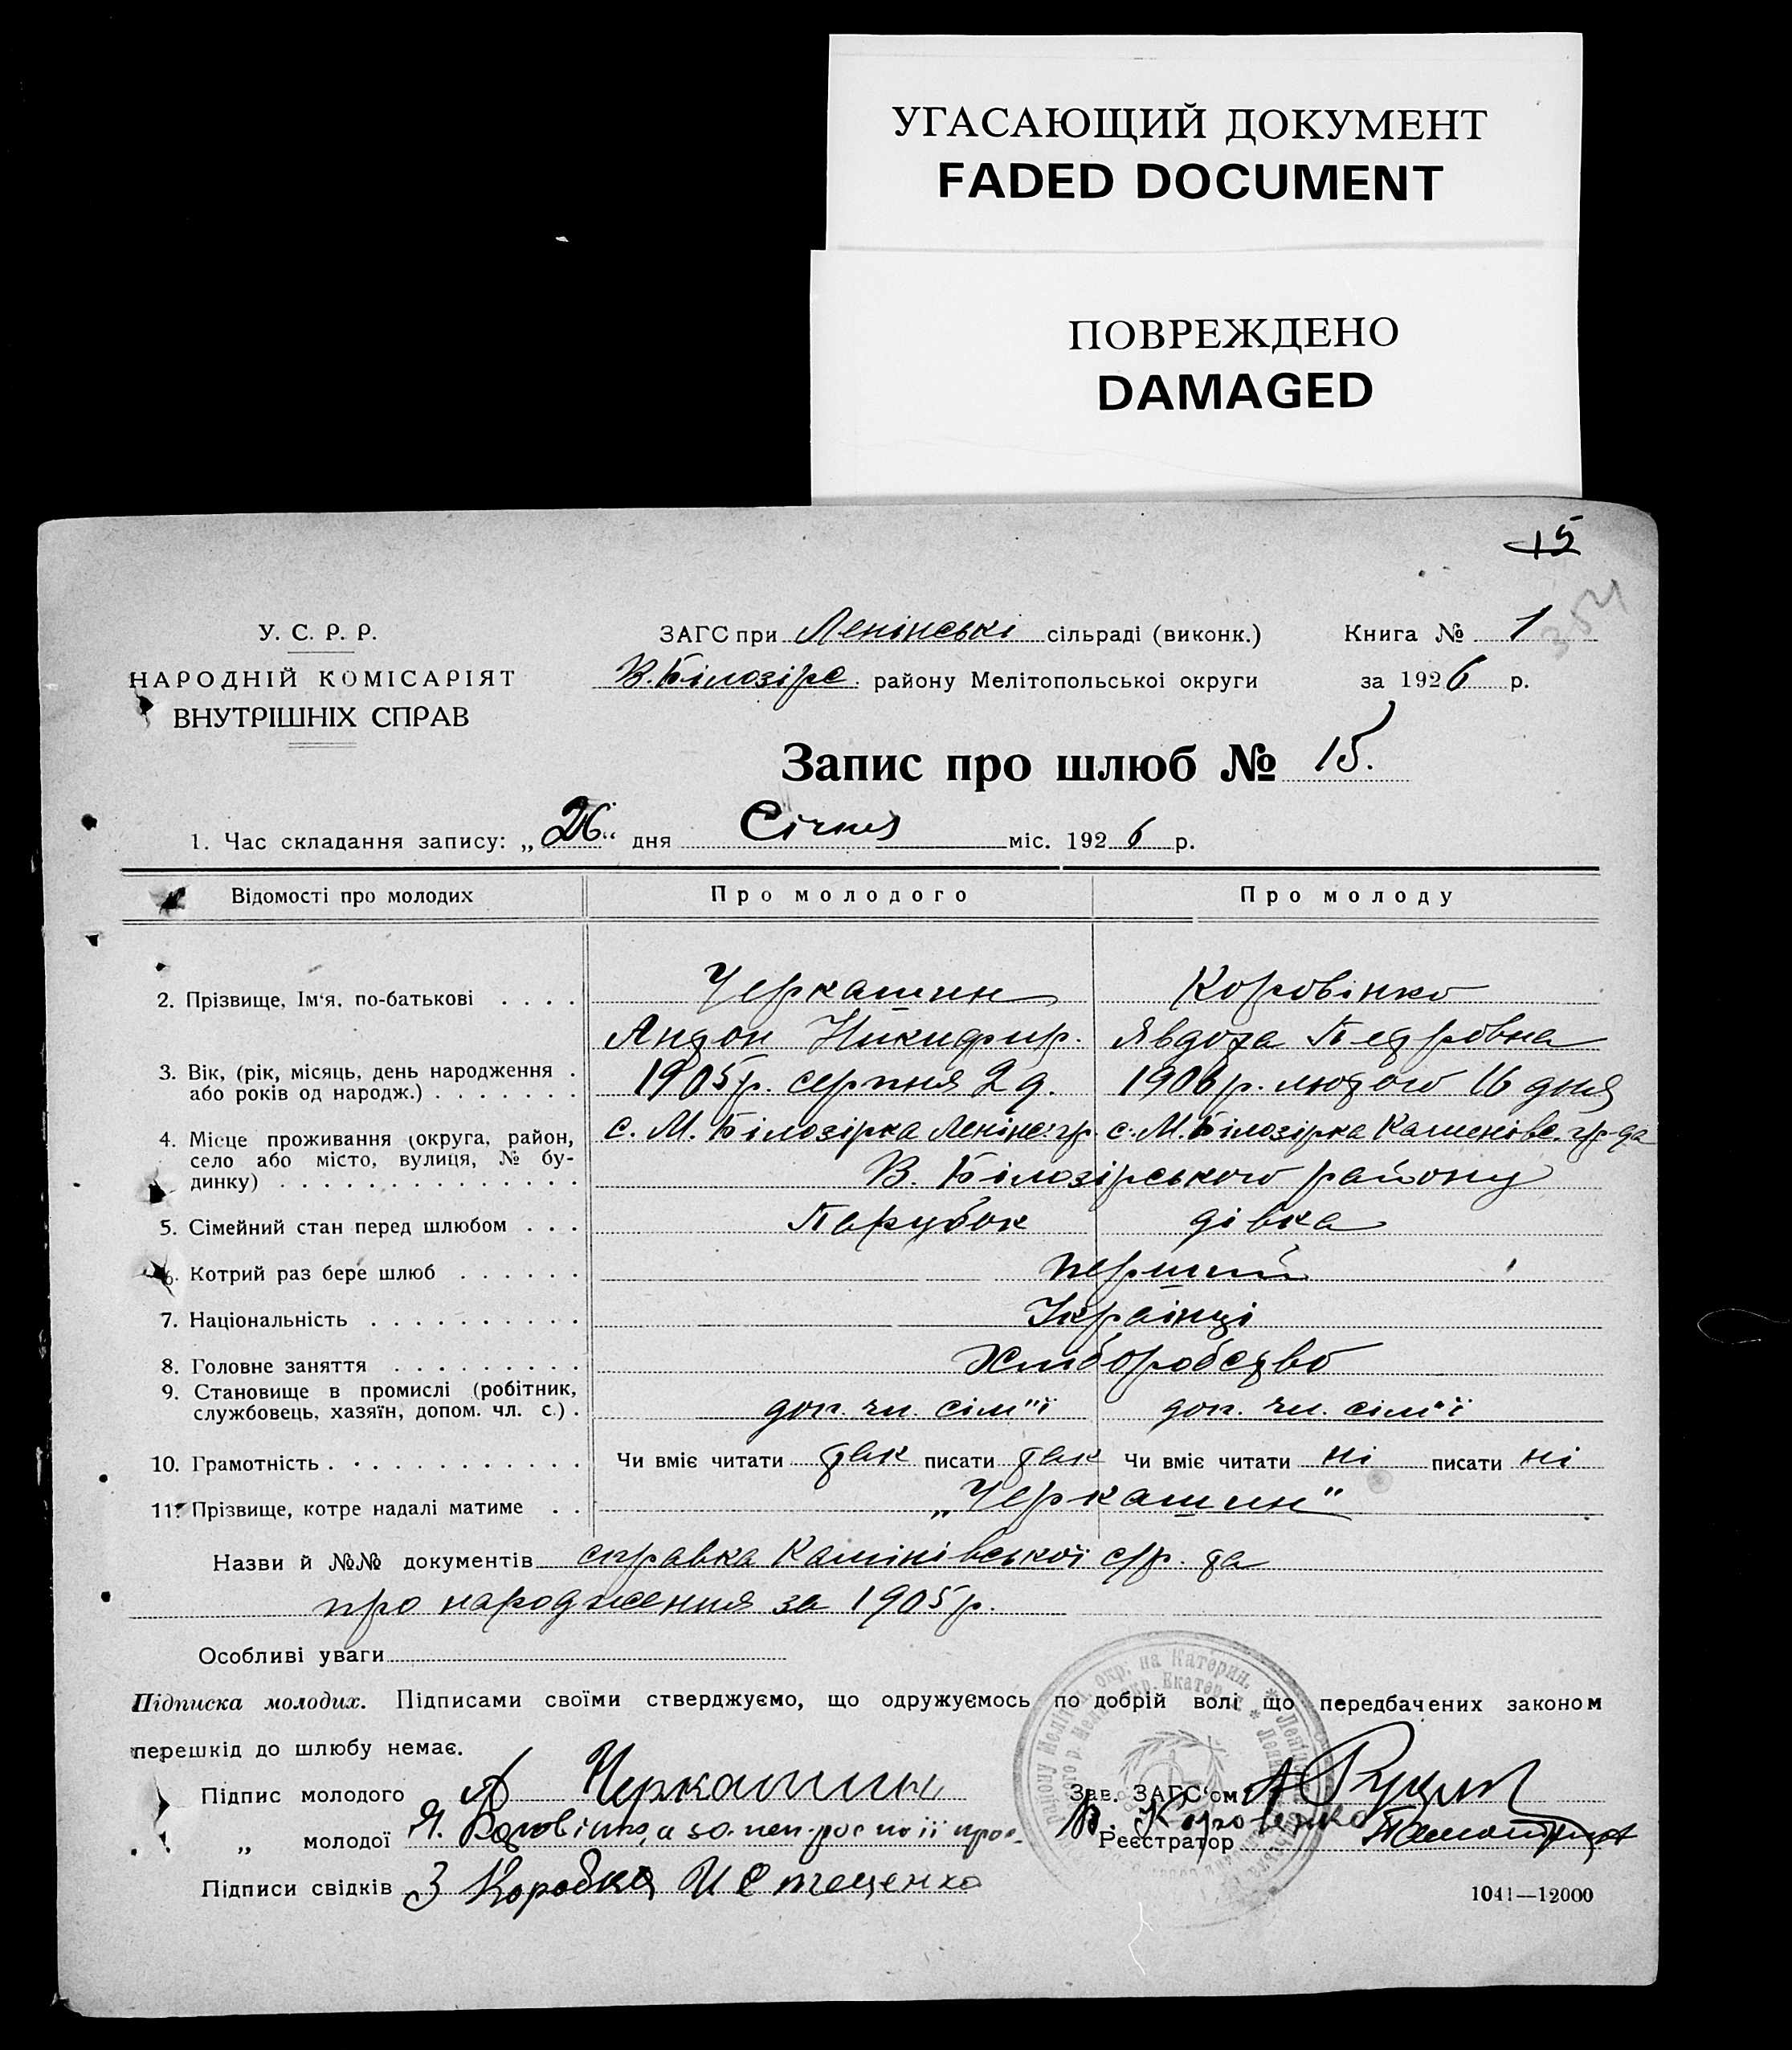 УГАСАЮЩИЙ ДОКУМЕНТ
FADED DOCUMENT
ПОВРЕЖДЕНО
DAMAGED
15
У. С. Р. Р.
НАРОДНІЙ КОМІСАРІЯТ
ВНУТРІШНІХ СПРАВ
ЗАГС при Ленінські сільраді (виконк.) Книга № 1
В. Білозірс. району Мелітопольськоі округи за 1926 р.
Запис про шлюб № 15.
1. Час складання запису: „26“ дня Січня міс. 1926 р.
Відомості про молодих Про молодого Про молоду
2. Прізвище, Ім‘я, по-батькові . . . . Черкашин Коровінко
Андон Никифир. Явдоха Петровна
3. Вік, (рік, місяць, день народження . або років од народж.) . . . . . . . 1905 р. серпня 2 д. 1906 р. лютого 16 дня
4. Місце проживання (округа, район, село або місто, вулиця, № будинку) . . . . . . . . . . . . . . с. М. Білозірка Лінінс. гр. с. М. Білозірка Каменівс. гр-да
В. Білозірського району
5. Сімейний стан перед шлюбом . . . Парубок дівка
6. Котрий раз бере шлюб . . . . . . перший
7. Національність . . . . . . . . . . Українці
8. Головне заняття . . . . . . . . . Хліборобство
9. Становище в промислі (робітник, службовець, хазяїн, допом. чл. с.) . доп. чл. сім"ї доп. чл. сім"ї
10. Грамотність . . . . . . . . . . . . Чи вміє читати так писати так Чи вміє читати ні писати ні
11. Прізвище, котре надалі матиме . . „Черкашин"
Назви й №№ документів справка Камінівської с/р. та
про народження за 1905 р.
Особливі уваги
Підписка молодих. Підписами своїми стверджуємо, що одружуємось по добрій волі що передбачених законом
перешкід до шлюбу немає.
Підпис молодого А Черкашин Зав. ЗАГС‘ом
„ молодої Я. Коровінко, а за непис по її прос. В. Коровенко Реєстратор
Підписи свідків З Коробка И Стеценко
1041—12000